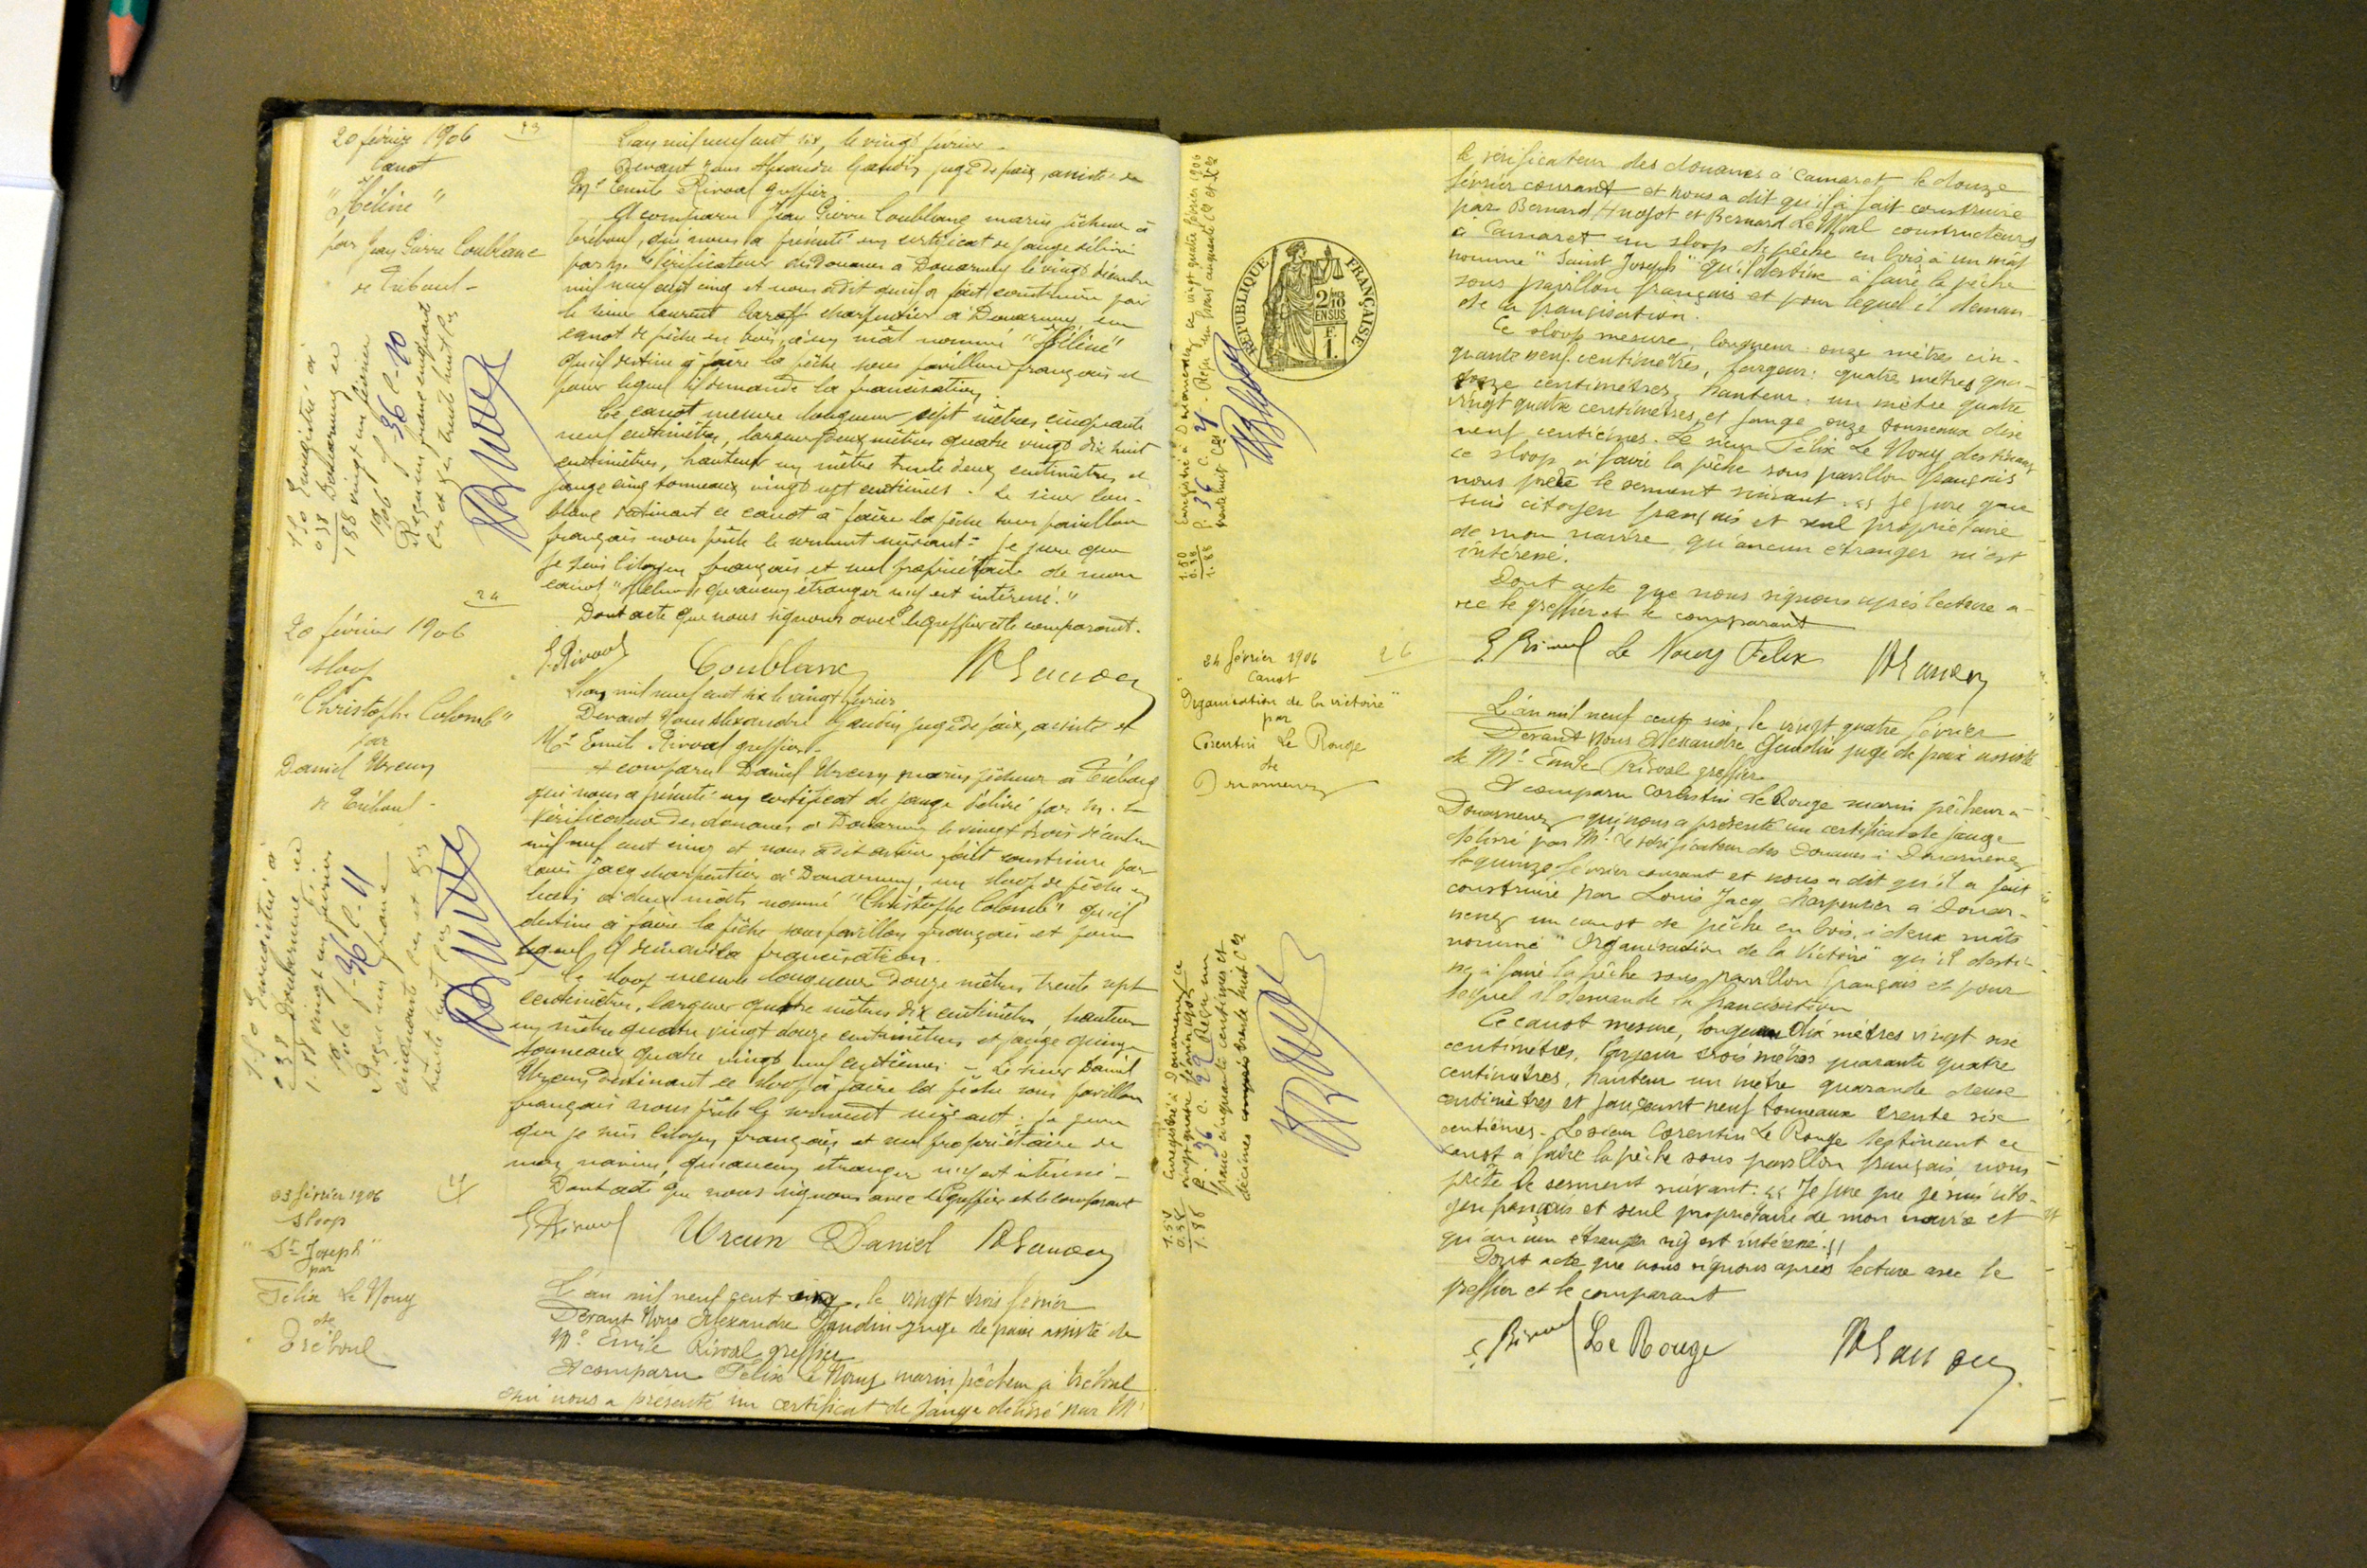 20 février 1906
23
Canot
"Hélène"
par Jean Pierre Coublanc
de Tréboul -
L'an mil neuf cent six, le vingt février -
Devant Nous Alexandre Gaudin juge de paix, assisté de
Mr Emile Rivoal greffier
A comparu Jean Pierre Coublanc marin pêcheur à
Tréboul, qui nous a présenté un certificat de jauge délivré
par M. le Vérificateur des Douanes à Douarnenez le vingt décembre
mil neuf cent cinq et nous a dit qu'il a fait construire par
le sieur Laurent charpentier à Douarnenez, un
canot de pêche en bois, à un mât nommé "Hélène"
qu'il destine à faire la pêche sous pavillon français et
pour lequel il demande la francisation.
Ce canot mesure longueur sept mètres cinquante
neuf centimètres, largeur deux mètres quatre vingt dix huit
centimètres, hauteur un mètre trente deux centimètres et
jauge cinq tonneaux vingt sept centièmes - Le sieur Cou-
blanc destinant ce canot à faire la pêche sous pavillon
français nous prête le serment suivant : Je jure que
je suis citoyen français et seul propriétaire de mon
canot "Hélène" qu'aucun étranger n'y est intéressé."
Dont acte que nous signons avec le greffier et le comparant.
E. Rivoal Coublanc AGaudin
1.50 Enregistré à
0.38 Douarnenez le
1.88 vingt un février
1906 f. 36 C. 10
Reçu un franc cinquante
ces et Xes trente huit ces
24
20 février 1906
sloop
"Christophe Colomb"
par
Daniel Urcun
de Tréboul -
L'an mil neuf cent six le vingt février
Devant Nous Alexandre Gaudin juge de paix, assisté de
Mr Emile Rivoal greffier -
A comparu Daniel Urcun marin pêcheur à Tréboul
qui nous a présenté un certificat de jauge délivré par M. le
Vérificateur des douanes à Douarnenez le vingt trois décembre
mil neuf cent cinq et nous a dit avoir fait construire par
Louis Jacq charpentier à Douarnenez un sloop de pêche en
bois à deux mâts nommé "Christophe Colomb" qu'il
destine à faire la pêche sous pavillon français et pour
lequel il demande la francisation.
Ce sloop mesure longueur douze mètres trente sept
centimètres, largeur quatre mètres dix centimètres, hauteur
un mètre quatre vingt douze centimètres et jauge quinze
tonneaux quatre vingt neuf centièmes - Le sieur Daniel
Urcun destinant ce sloop à faire la pêche sous pavillon
français nous prête le serment suivant : Je jure
que je suis citoyen français et seul propriétaire de
mon navire, qu'aucun étranger n'y est intéressé -
Dont acte que nous signons avec le greffier et le comparant
E. Rivoal Urcun Daniel AGaudin
1.50 Enregistré à
0.38 Douarnenez le
1.88 vingt un février
1906 f. 36 C. 11
Reçu un franc
cinquante ces et Xes
trente huit ces
23 février 1906
sloop
"St Joseph"
par
Félix Le Nouy
de
Tréboul
L'an mil neuf cent cinq, le vingt trois février
Devant Nous Alexandre Gaudin juge de paix assisté de
Mr Emile Rivoal greffier
A comparu Félix Le Nouy marin pêcheur à Tréboul
qui nous a présenté un certificat de jauge délivré par Mr
le vérificateur des douanes à Camaret le douze
février courant et nous a dit qu'il a fait construire
par Bernard et Bernard Le Moal constructeurs
à Camaret un sloop de pêche en bois à un mât
nommé "Saint Joseph" qu'il destine à faire la pêche
sous pavillon français et pour lequel il deman-
de la francisation.
Ce sloop mesure, longueur : onze mètres cin-
quante neuf centimètres, largeur : quatre mètres qua-
torze centimètres, hauteur : un mètre quatre
vingt quatre centimètres, et jauge onze tonneaux dix
neuf centièmes. Le sieur Félix Le Nouy destinant
ce sloop à faire la pêche sous pavillon français
nous prête le serment suivant : "Je jure que
suis citoyen français et seul propriétaire
de mon navire qu'aucun étranger n'est
intéressé.
Dont acte que nous signons après lecture a-
vec le greffier et le comparant
E. Rivoal Le Nouy Félix AGaudin
1.50
0.38
1.88
Enregistré à Douarnenez le vingt quatre février 1906
f. 36 C. 21. Reçu un franc cinquante ces et Xes
trente huit ces
RÉPUBLIQUE FRANÇAISE
2/10
EN SUS
F.
1.
24 février 1906
26
Canot
"Organisation de la victoire"
par
Corentin Le Rouge
de
Douarnenez
L'an mil neuf cent six, le vingt quatre février
Devant Nous Alexandre Gaudin juge de paix assisté
de Mr Emile Rivoal greffier
A comparu Corentin Le Rouge marin pêcheur à
Douarnenez qui nous a présenté un certificat de jauge
délivré par Mr le vérificateur des Douanes à Douarnenez
le quinze février courant et nous a dit qu'il a fait
construire par Louis Jacq charpentier à Douar-
nenez un canot de pêche en bois, à deux mâts
nommé "Organisation de la Victoire" qu'il desti-
ne à faire la pêche sous pavillon français et pour
lequel il demande la francisation
Ce canot mesure, longueur dix mètres vingt six
centimètres, largeur trois mètres quarante quatre
centimètres, hauteur un mètre quarante deux
centimètres et jaugeant neuf tonneaux trente six
centièmes. Le sieur Corentin Le Rouge destinant ce
canot à faire la pêche sous pavillon français nous
prête le serment suivant : "Je jure que je suis cito-
yen français et seul propriétaire de mon navire et
qu'aucun étranger n'y est intéressé."
Dont acte que nous signons après lecture avec le
greffier et le comparant
E. Rivoal Le Rouge AGaudin
1.50
0.38
1.88
Enregistré à Douarnenez le
vingt quatre février 1906
f. 36 C. 22 Reçu un
franc cinquante centimes et
décimes trente huit ces